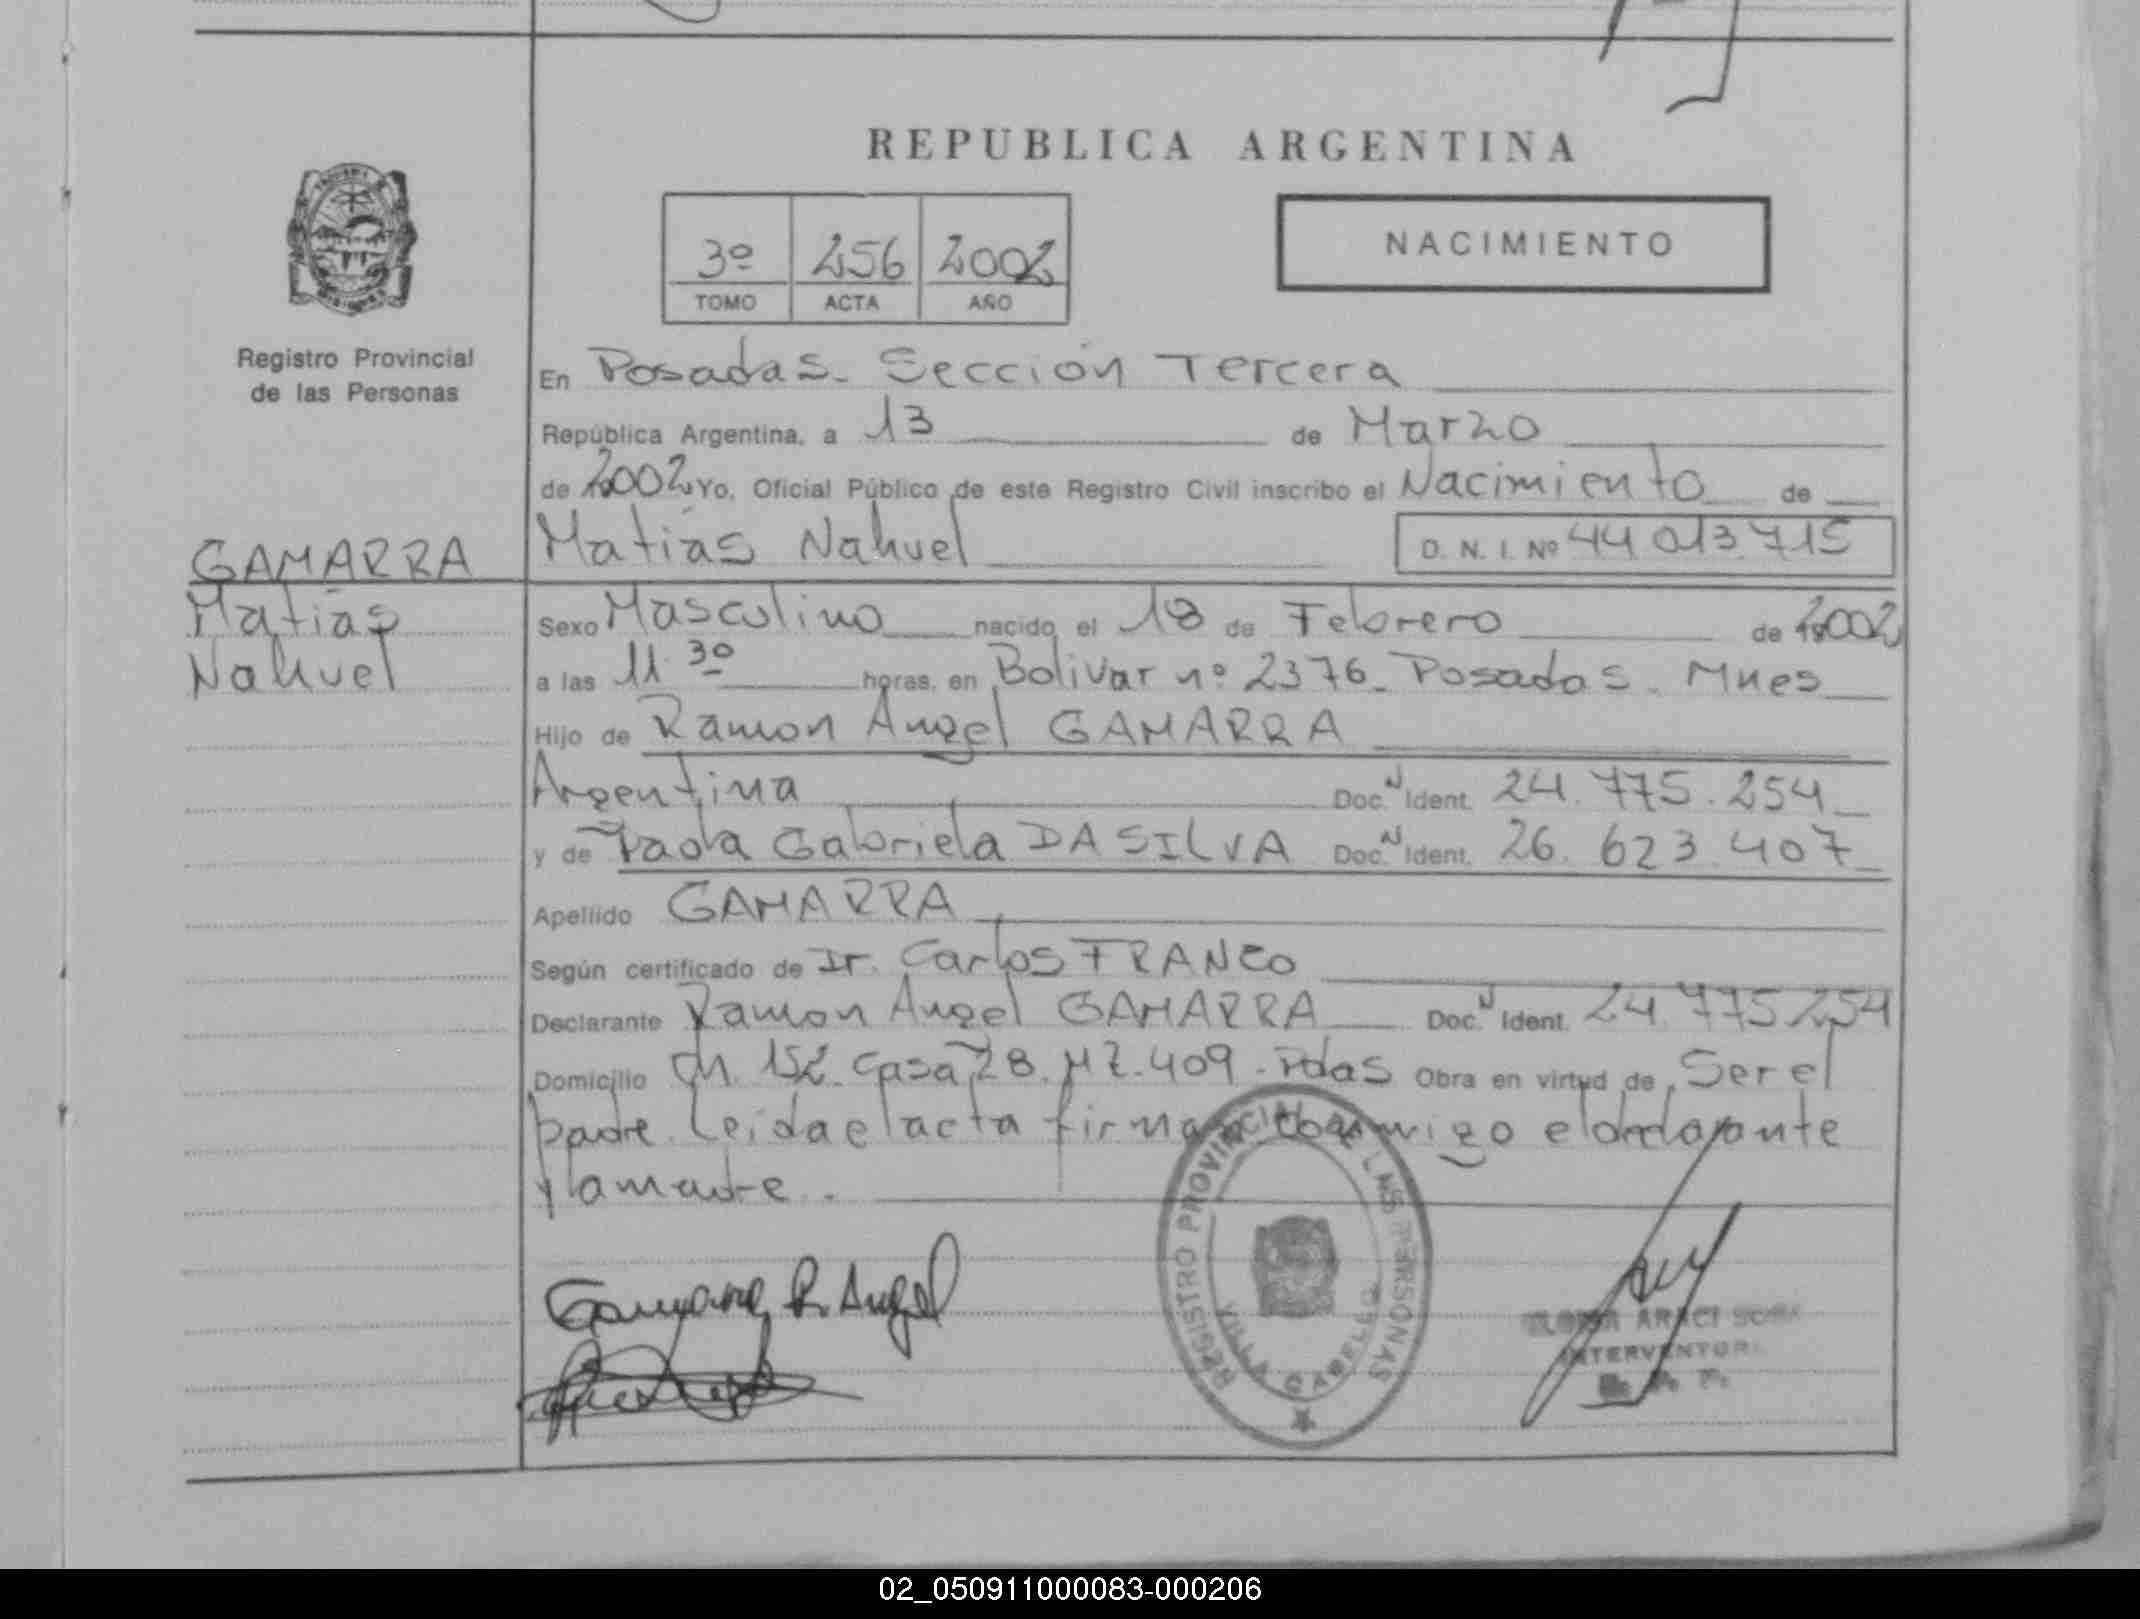 REPUBLICA ARGENTINA
3º 256 2002
TOMO ACTA AÑO
NACIMIENTO
Registro Provincial
de las Personas
En Posadas. Sección Tercera
República Argentina, a 13 de Marzo
de 2002 Yo, Oficial Público de este Registro Civil inscribo el Nacimiento de
GAMARRA
Matías Nahuel D. N. I. Nº 44 013.715
Matías
Nahuel
Sexo Masculino nacido el 18 de Febrero de 2002
a las 11.30 horas, en Bolivar nº 2376. Posadas. Mnes
Hijo de Ramon Angel GAMARRA
Argentina Doc. N Ident. 24.775.254
y de Paola Gabriela DA SILVA Doc. N Ident. 26.623.407
Apellido GAMARRA
Según certificado de Dr. Carlos FRANCO
Declarante Ramon Angel GAMARRA Doc. N Ident. 24.775.254
Domicilio Ch. 152. Casa 28. MZ. 409. Pdas Obra en virtud de Ser el
padre. Leida el acta firman conmigo el declarante
y la madre.
Gamarra R. Angel
REGISTRO PROVINCIAL DE LAS PERSONAS
VILLA CABELLO
ARACI
INTERVENTORA
02_050911000083-000206